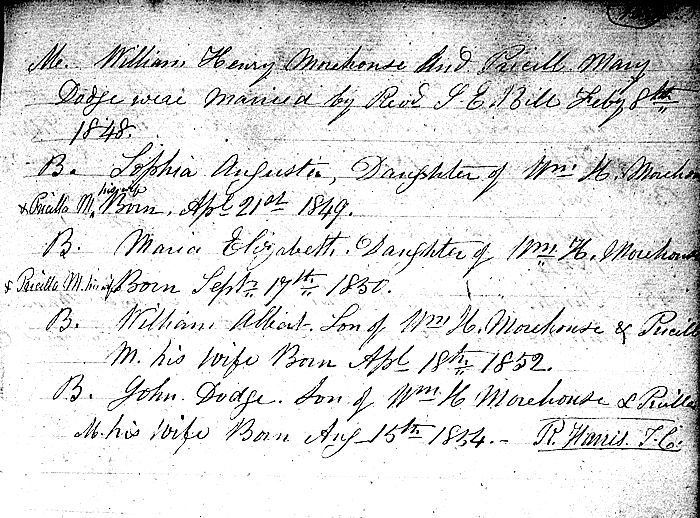 M. William Henry Morehouse And Pricill Mary
Dodge were Married by Revd I. E. Bill Feby 8th
1848.
B. Sophia Augusta, Daughter of Wm H. Morehous
& Pricilla M. his wife Born. Apl 21st 1849.
B. Maria Elizabeth. Daughter of Wm H. Morehous
& Pricilla M. his wife Born Sept 17th 1850.
B. William Albert. Son of Wm H. Morehouse & Pricill
M. his Wife Born Apl 18th 1852.
B. John Dodge. Son of Wm H Morehouse & Pricilla
M. his Wife Born Aug 15th 1854. - R. Harris. T. C.